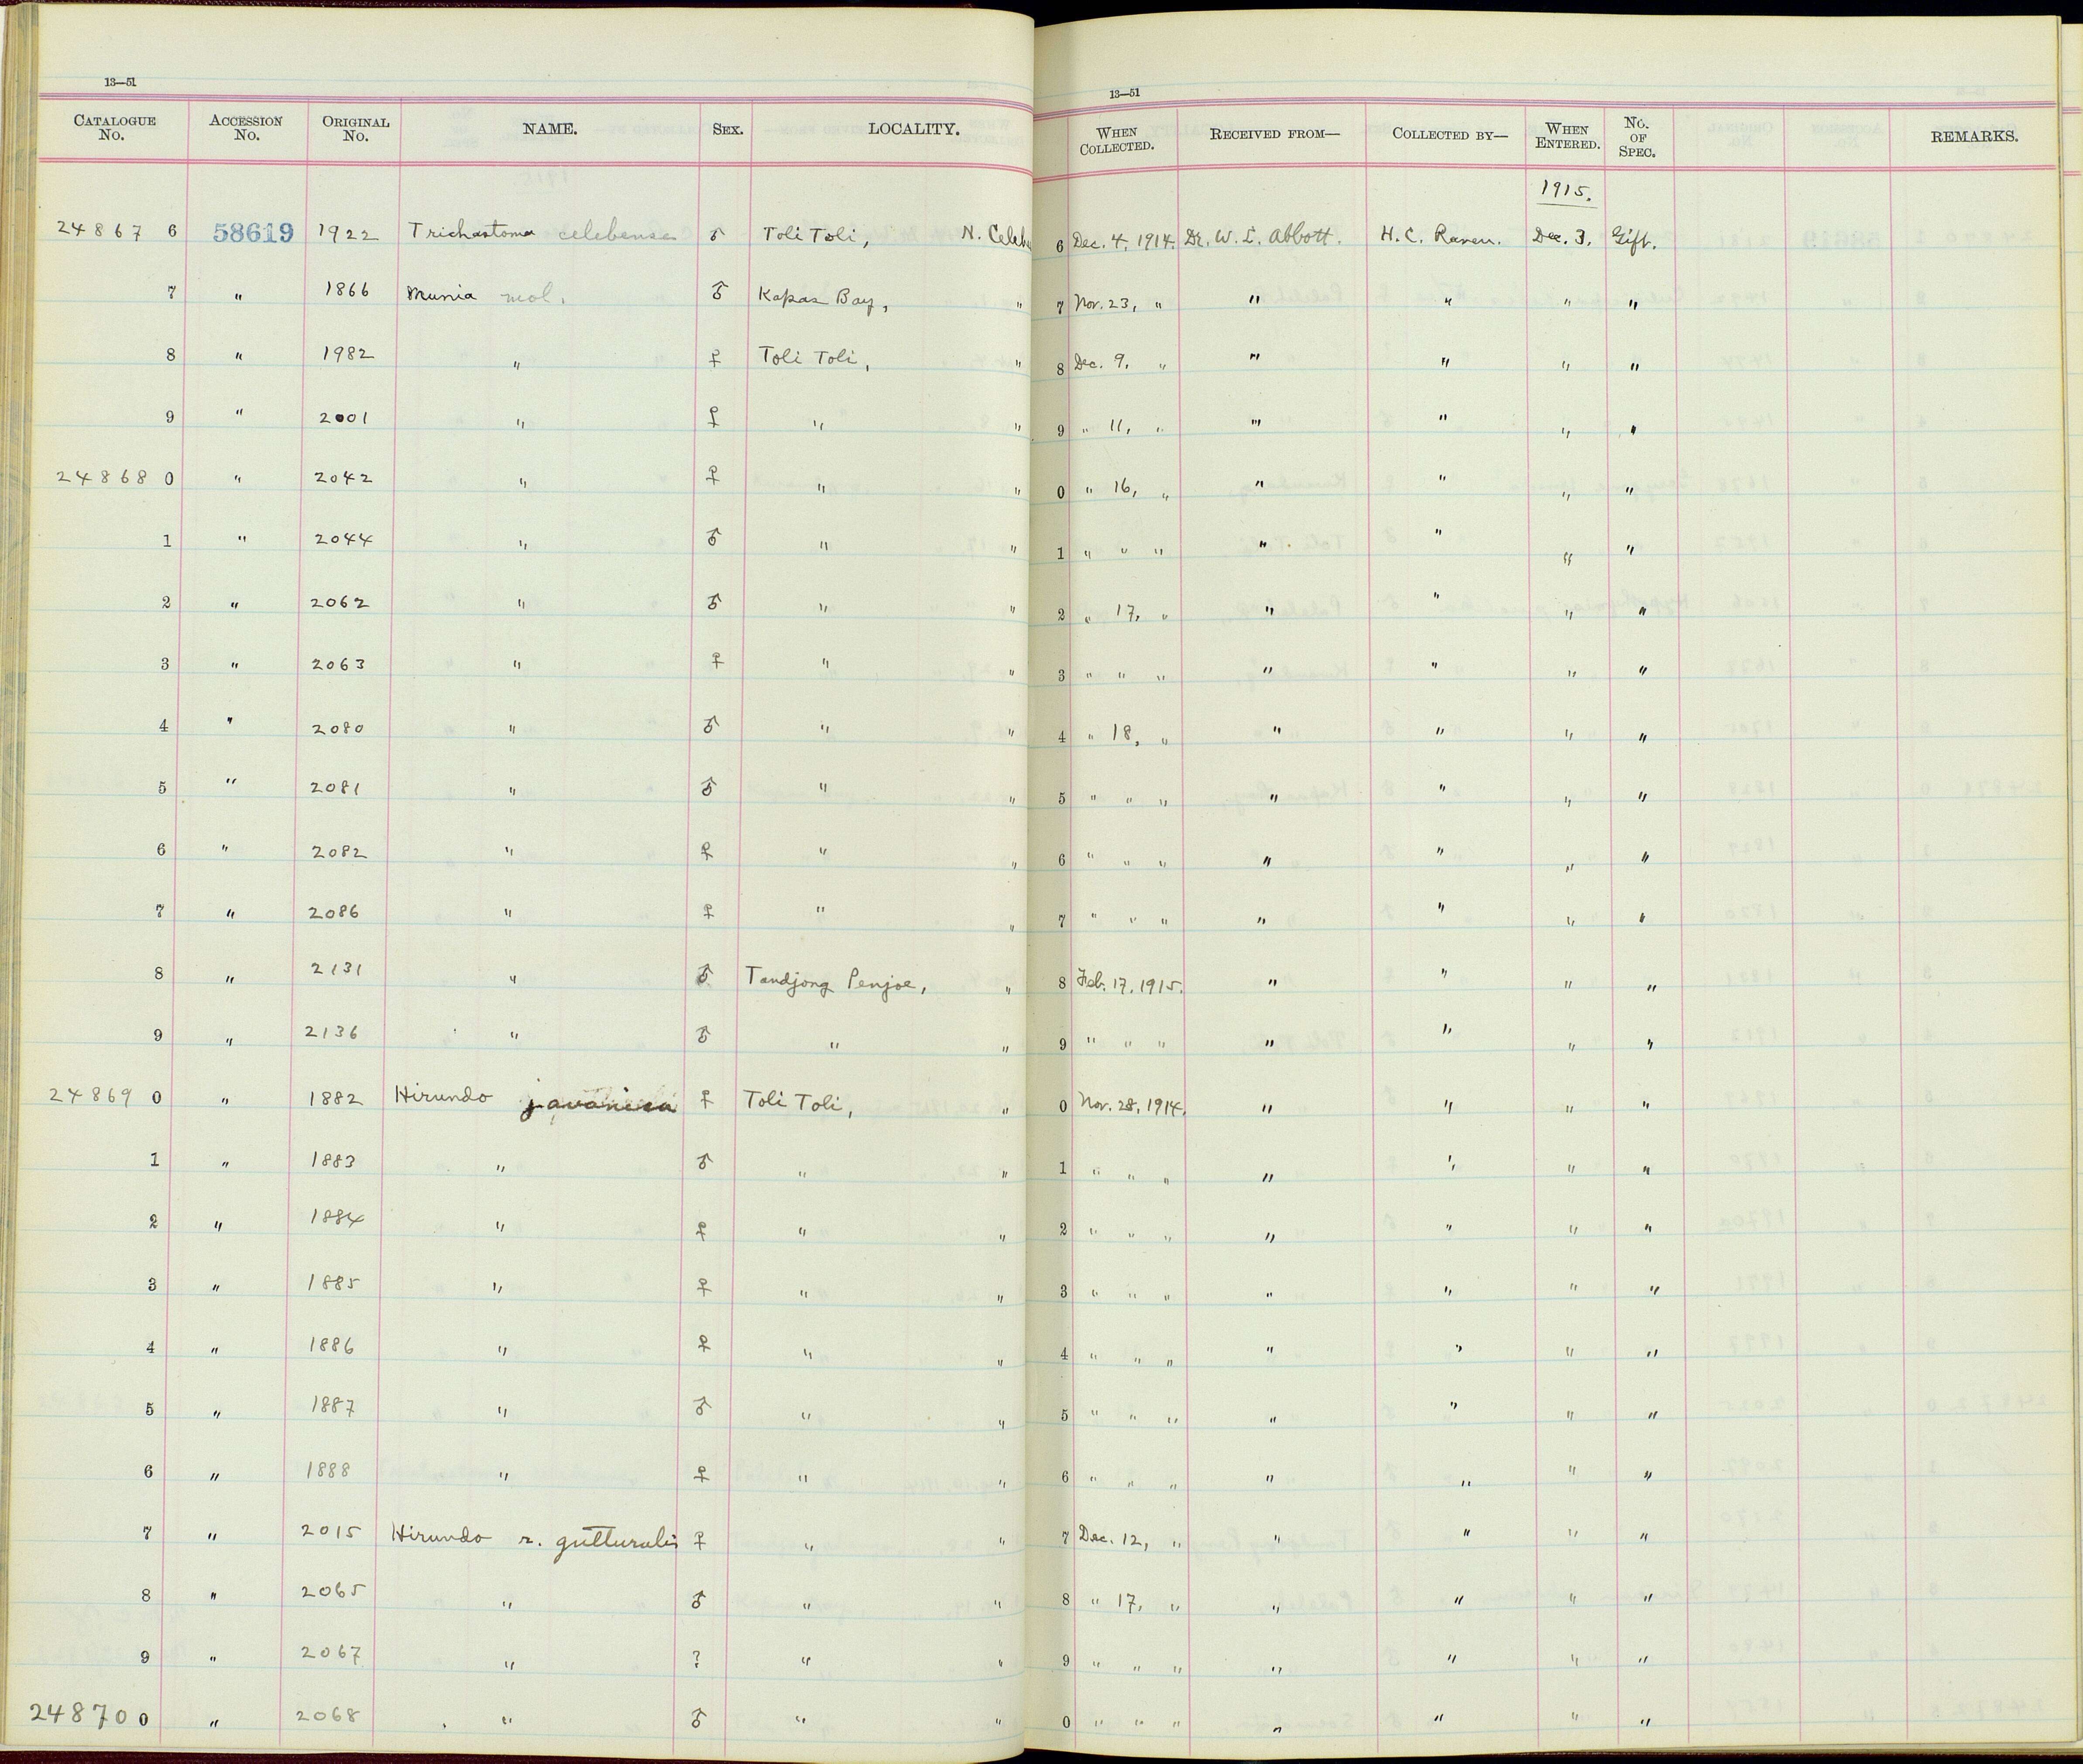 13—51
13—51
CATALOGUE No. ACCESSION No. ORIGINAL No. NAME. SEX. LOCALITY. WHEN COLLECTED. RECEIVED FROM— COLLECTED BY— WHEN ENTERED. No. OF SPEC. REMARKS.
1915.
24867 6 58619 1922 Trichastoma celebense ♂ Toli Toli, N. Celebes 6 Dec. 4, 1914. Dr. W. L. Abbott. H. C. Raven. Dec. 3. Gift.
7 " 1866 Munia mol. ♂ Kapas Bay, " 7 Nov. 23, " " " " "
8 " 1982 " ♀ Toli Toli, " 8 Dec. 9, " " " " "
9 " 2001 " ♀ " " 9 " 11, " " " " "
24868 0 " 2042 " ♀ " " 0 " 16, " " " " "
1 " 2044 " ♂ " " 1 " " " " " " "
2 " 2062 " ♂ " " 2 " 17, " " " " "
3 " 2063 " ♀ " " 3 " " " " " " "
4 " 2080 " ♂ " " 4 " 18, " " " " "
5 " 2081 " ♂ " " 5 " " " " " " "
6 " 2082 " ♀ " " 6 " " " " " " "
7 " 2086 " ♀ " " 7 " " " " " " "
8 " 2131 " ♂ Tandjong Penjoe, " 8 Feb. 17, 1915. " " " "
9 " 2136 " ♂ " " 9 " " " " " " "
24869 0 " 1882 Hirundo javanica ♀ Toli Toli, " 0 Nov. 28, 1914. " " " "
1 " 1883 " ♂ " " 1 " " " " " " "
2 " 1884 " ♀ " " 2 " " " " " " "
3 " 1885 " ♀ " " 3 " " " " " " "
4 " 1886 " ♀ " " 4 " " " " " " "
5 " 1887 " ♂ " " 5 " " " " " " "
6 " 1888 " ♀ " " 6 " " " " " " "
7 " 2015 Hirundo r. gutturalis ♀ " " 7 Dec. 12, " " " " "
8 " 2065 " ♂ " " 8 " 17, " " " " "
9 " 2067 " ? " " 9 " " " " " " "
24870 0 " 2068 " ♂ " " 0 " " " " " " "